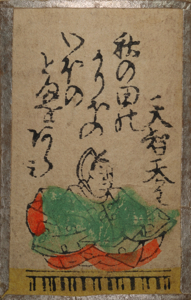 天智天皇
秋の田の
かりほの
いほの
とまをあらみ